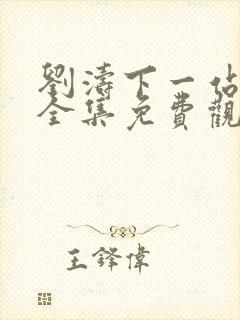 劉濤下一佔
全集免費觀
王鋒偉